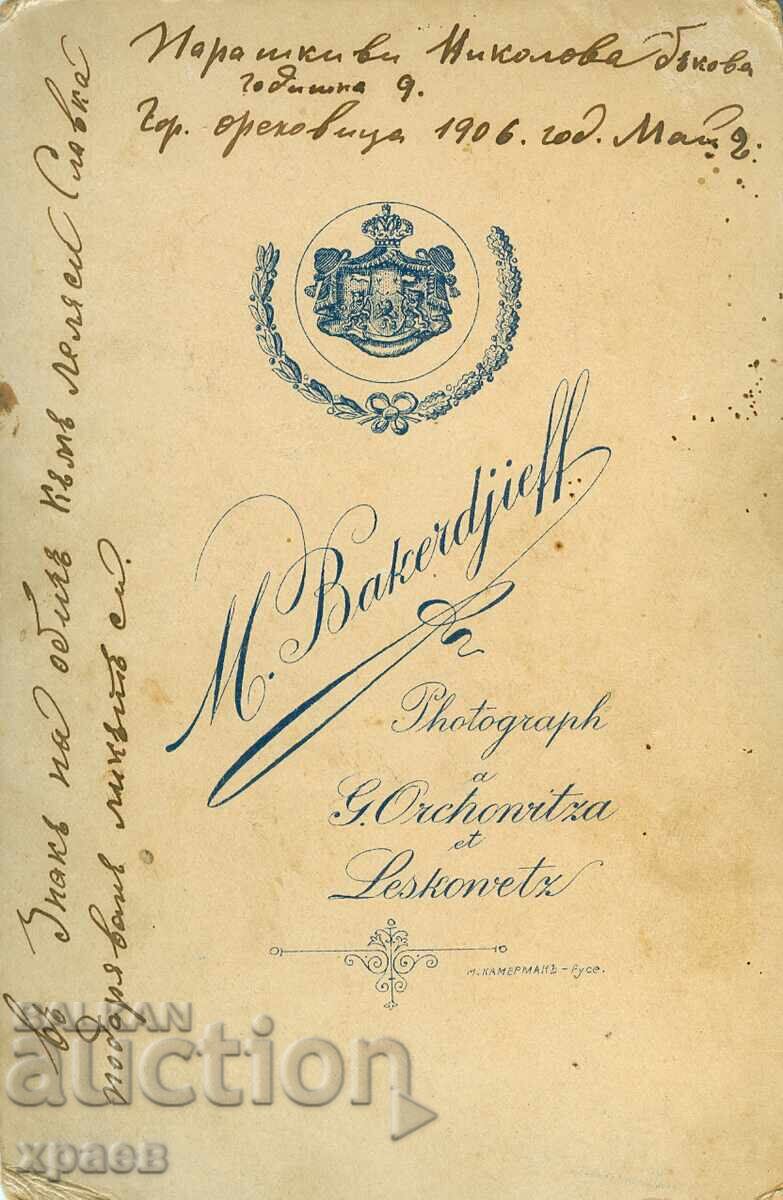 Парашкиви Николова Бѣкова
годишна 9.
Гор. Ореховица 1906. год. Май 2.
Въ Знакъ на обичь къмъ леля си Славка
подарявамъ ликътъ си.
M. Bakerdjieff
Photograph
a
G. Orchowitza
et
Leskowetz
М. КАМЕРМАНЪ – Русе.
BALKAN
auction
храев